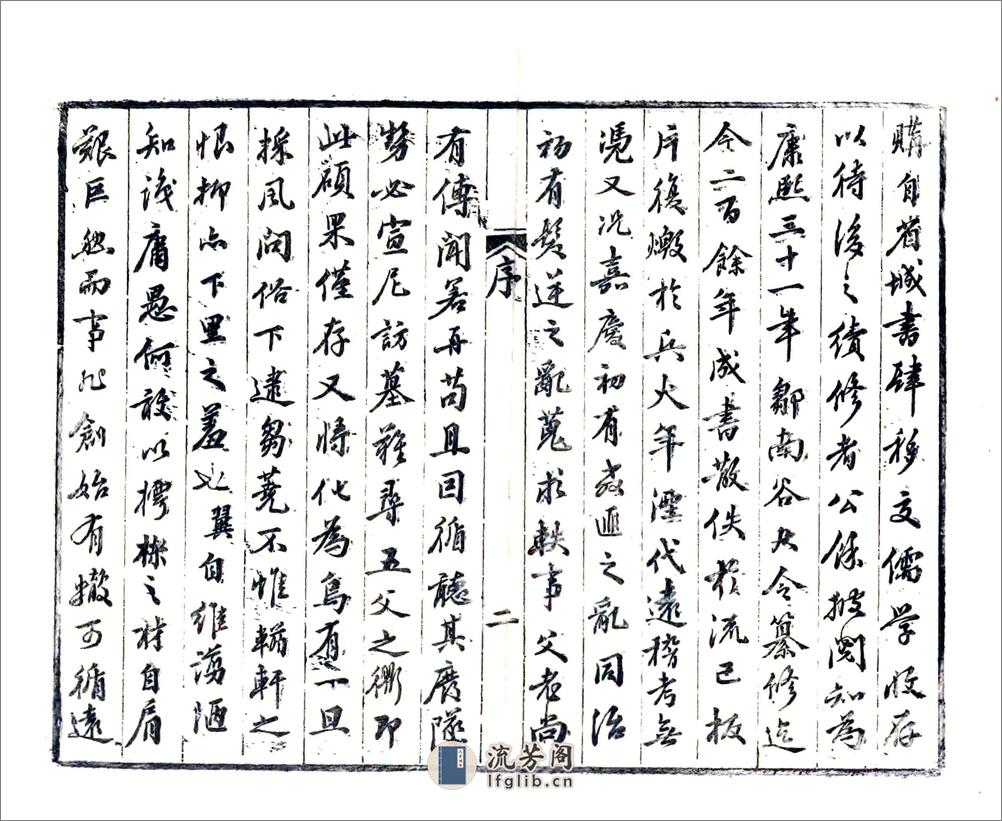 購自省城書肆移文儒學收存
以待後之續修者公餘披閱知為
康熙三十一年鄒南谷大令纂修迄
今二百餘年成書散佚於流已板
片復燬於兵火年湮代遠稽考無
憑又況嘉慶初有教匪之亂同治
初有髮逆之亂蒐求軼事父老尚
序
二
有傳聞若再苟且因循聽其廢墜
勢必宣尼訪墓難尋五父之衢即
此碩果僅存又將化為烏有一旦
採風問俗下逮芻蕘不惟輶軒之
恨抑亦下里之羞也翼自維譾陋
知識庸愚何敢以樗櫟之材自肩
艱巨然而事非創始有轍可循遠
流芳阁
lfglib.cn